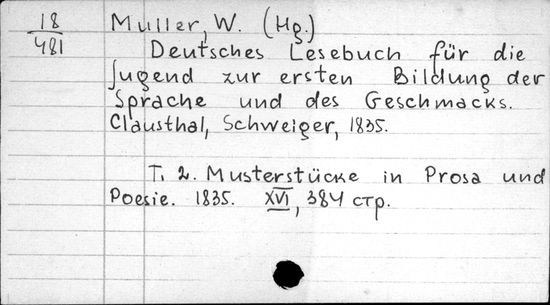 18
481
Muller, W. (Hg.)
Deutsches Lesebuch für die
Jugend zur ersten Bildung der
Sprache und des Geschmacks.
Clausthal, Schweiger, 1835.
T. 2. Musterstücke in Prosa und
Poesie. 1835. XVI, 384 стр.